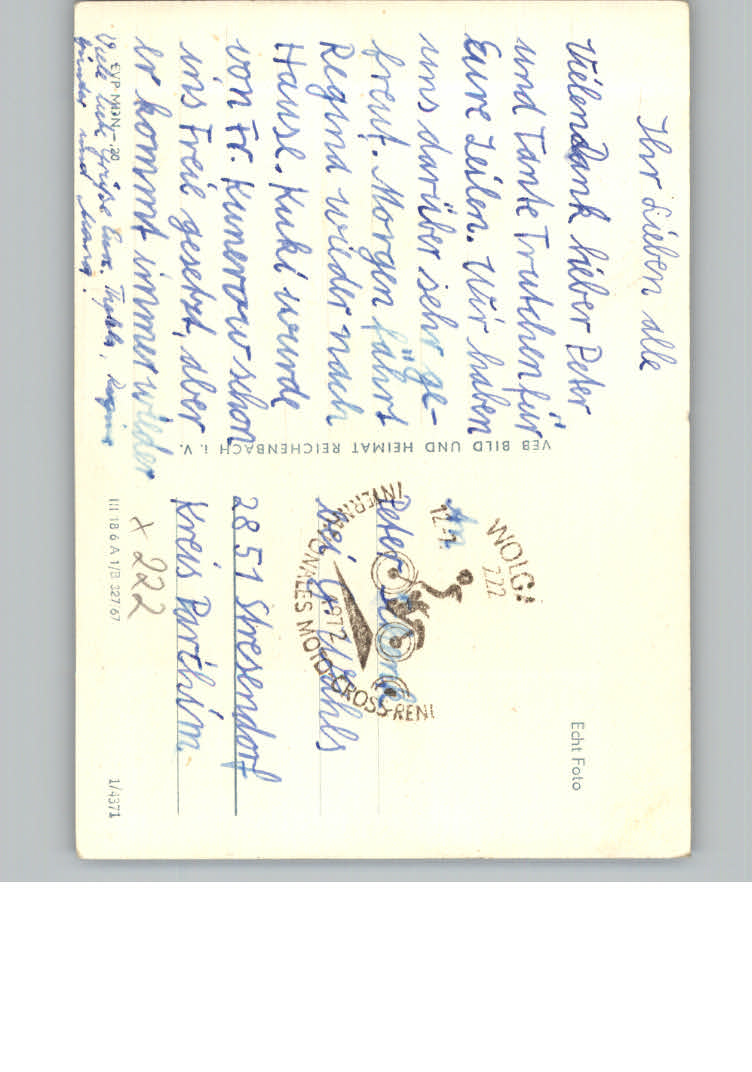 Ihr Lieben alle
Vielen Dank lieber Peter
und Tante Trutchen für
Eure Zeilen. Wir haben
uns darüber sehr ge-
freut. Morgen fährt
Regina wieder nach
Hause. Kuki wurde
von Fr. Kunerow schon
ins Freie gesetzt, aber
er kommt immer wieder
Viele liebe Grüße Eure
und
EVP MDN -,20
VEB BILD UND HEIMAT REICHENBACH i. V.
III 18 6 A 1/B 327/67
1/4371
Echt Foto
WOLGA
222
1972
INTERNATIONALES MOTO-CROSS-RENN
An
Peter
bei
2851 Stresendorf
Kreis Parchim
x 222